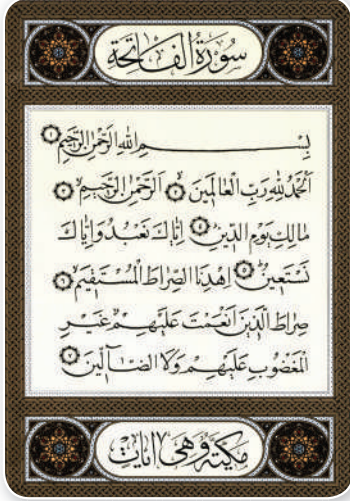 سُورَةُ الْفَاتِحَةِ
بِسْمِ اللهِ الرَّحْمٰنِ الرَّحِيْمِ ١
اَلْحَمْدُ لِلّٰهِ رَبِّ الْعَالَمِيْنَ ٢ اَلرَّحْمٰنِ الرَّحِيْمِ ٣
مَالِكِ يَوْمِ الدِّيْنِ ٤ اِيَّاكَ نَعْبُدُ وَاِيَّاكَ
نَسْتَعِيْنُ ٥ اِهْدِنَا الصِّرَاطَ الْمُسْتَقِيْمَ ٦
صِرَاطَ الَّذِيْنَ اَنْعَمْتَ عَلَيْهِمْ غَيْرِ
الْمَغْضُوْبِ عَلَيْهِمْ وَلَا الضَّآلِّيْنَ ٧
مَكِيَّةٌ وَهِيَ اٰيَاتٍ